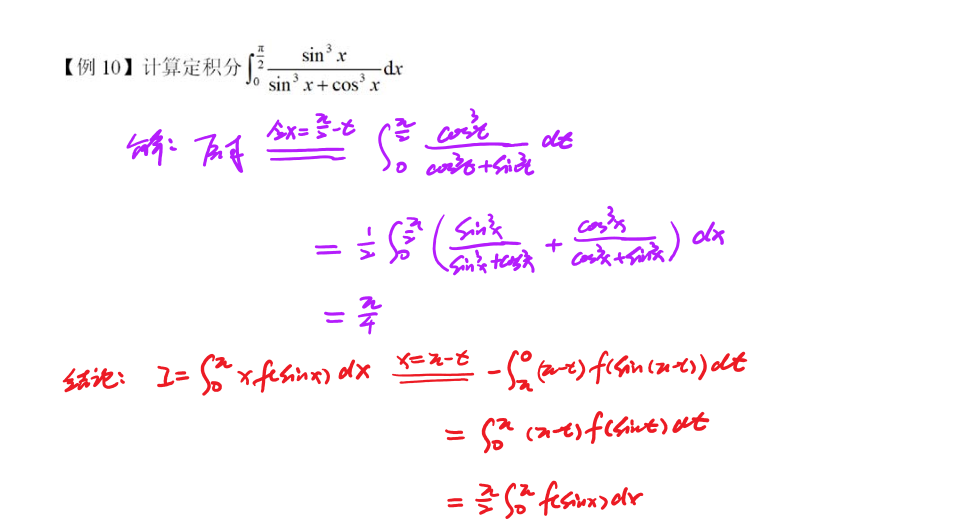 【例 10】计算定积分∫₀^{π/2} sin³x/(sin³x+cos³x) dx
解：原式 令x=π/2-t ∫₀^{π/2} cos³t/(cos³t+sin³t) dt
= 1/2 ∫₀^{π/2} (sin³x/(sin³x+cos³x) + cos³x/(cos³x+sin³x)) dx
= π/4
结论：I=∫₀^π x f(sinx) dx x=π-t -∫_π^0 (π-t) f(sin(π-t)) dt
= ∫₀^π (π-t) f(sint) dt
= π/2 ∫₀^π f(sinx) dx